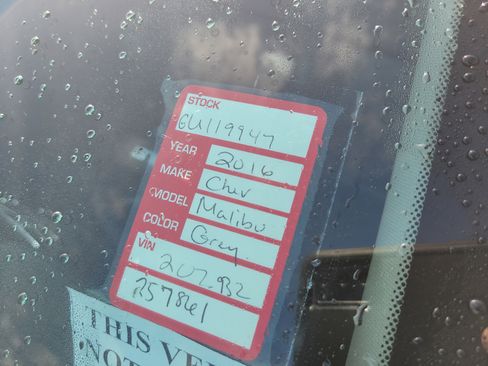 STOCK
GU119947
YEAR 2016
MAKE Chev
MODEL Malibu
COLOR Grey
VIN
207.932
257861
THIS VE
NOT